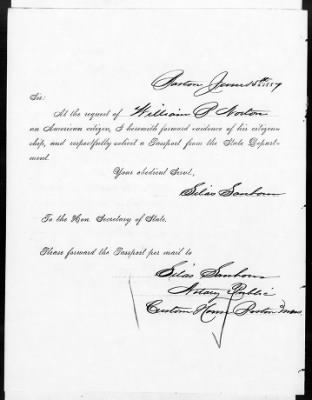 Boston June 15th 1857
Sir:
At the request of William P Norton
an American citizen, I herewith forward evidence of his citizen-
ship, and respectfully solicit a Passport from the State Depart-
ment.
Your obedient Servt,
Silas Sanborn
To the Hon. Secretary of State.
Please forward the Passport per mail to
Silas Sanborn
Notary Public
Custom House Boston Mass